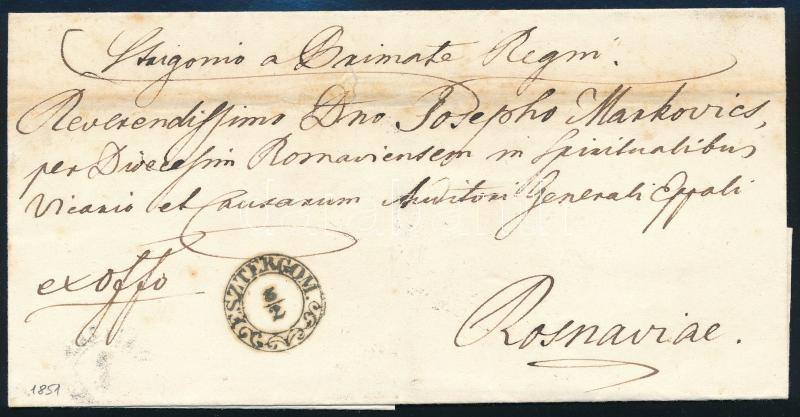 Strigonio a Primate Regni.
Reverendissimo Dno Josepho Markovics,
per Dioecesim Rosnaviensem in Spiritualibus
Vicario et Causarum Auditori Generali Eppali
exoffo
ESZTERGOM.
6/2
Rosnaviae.
1851